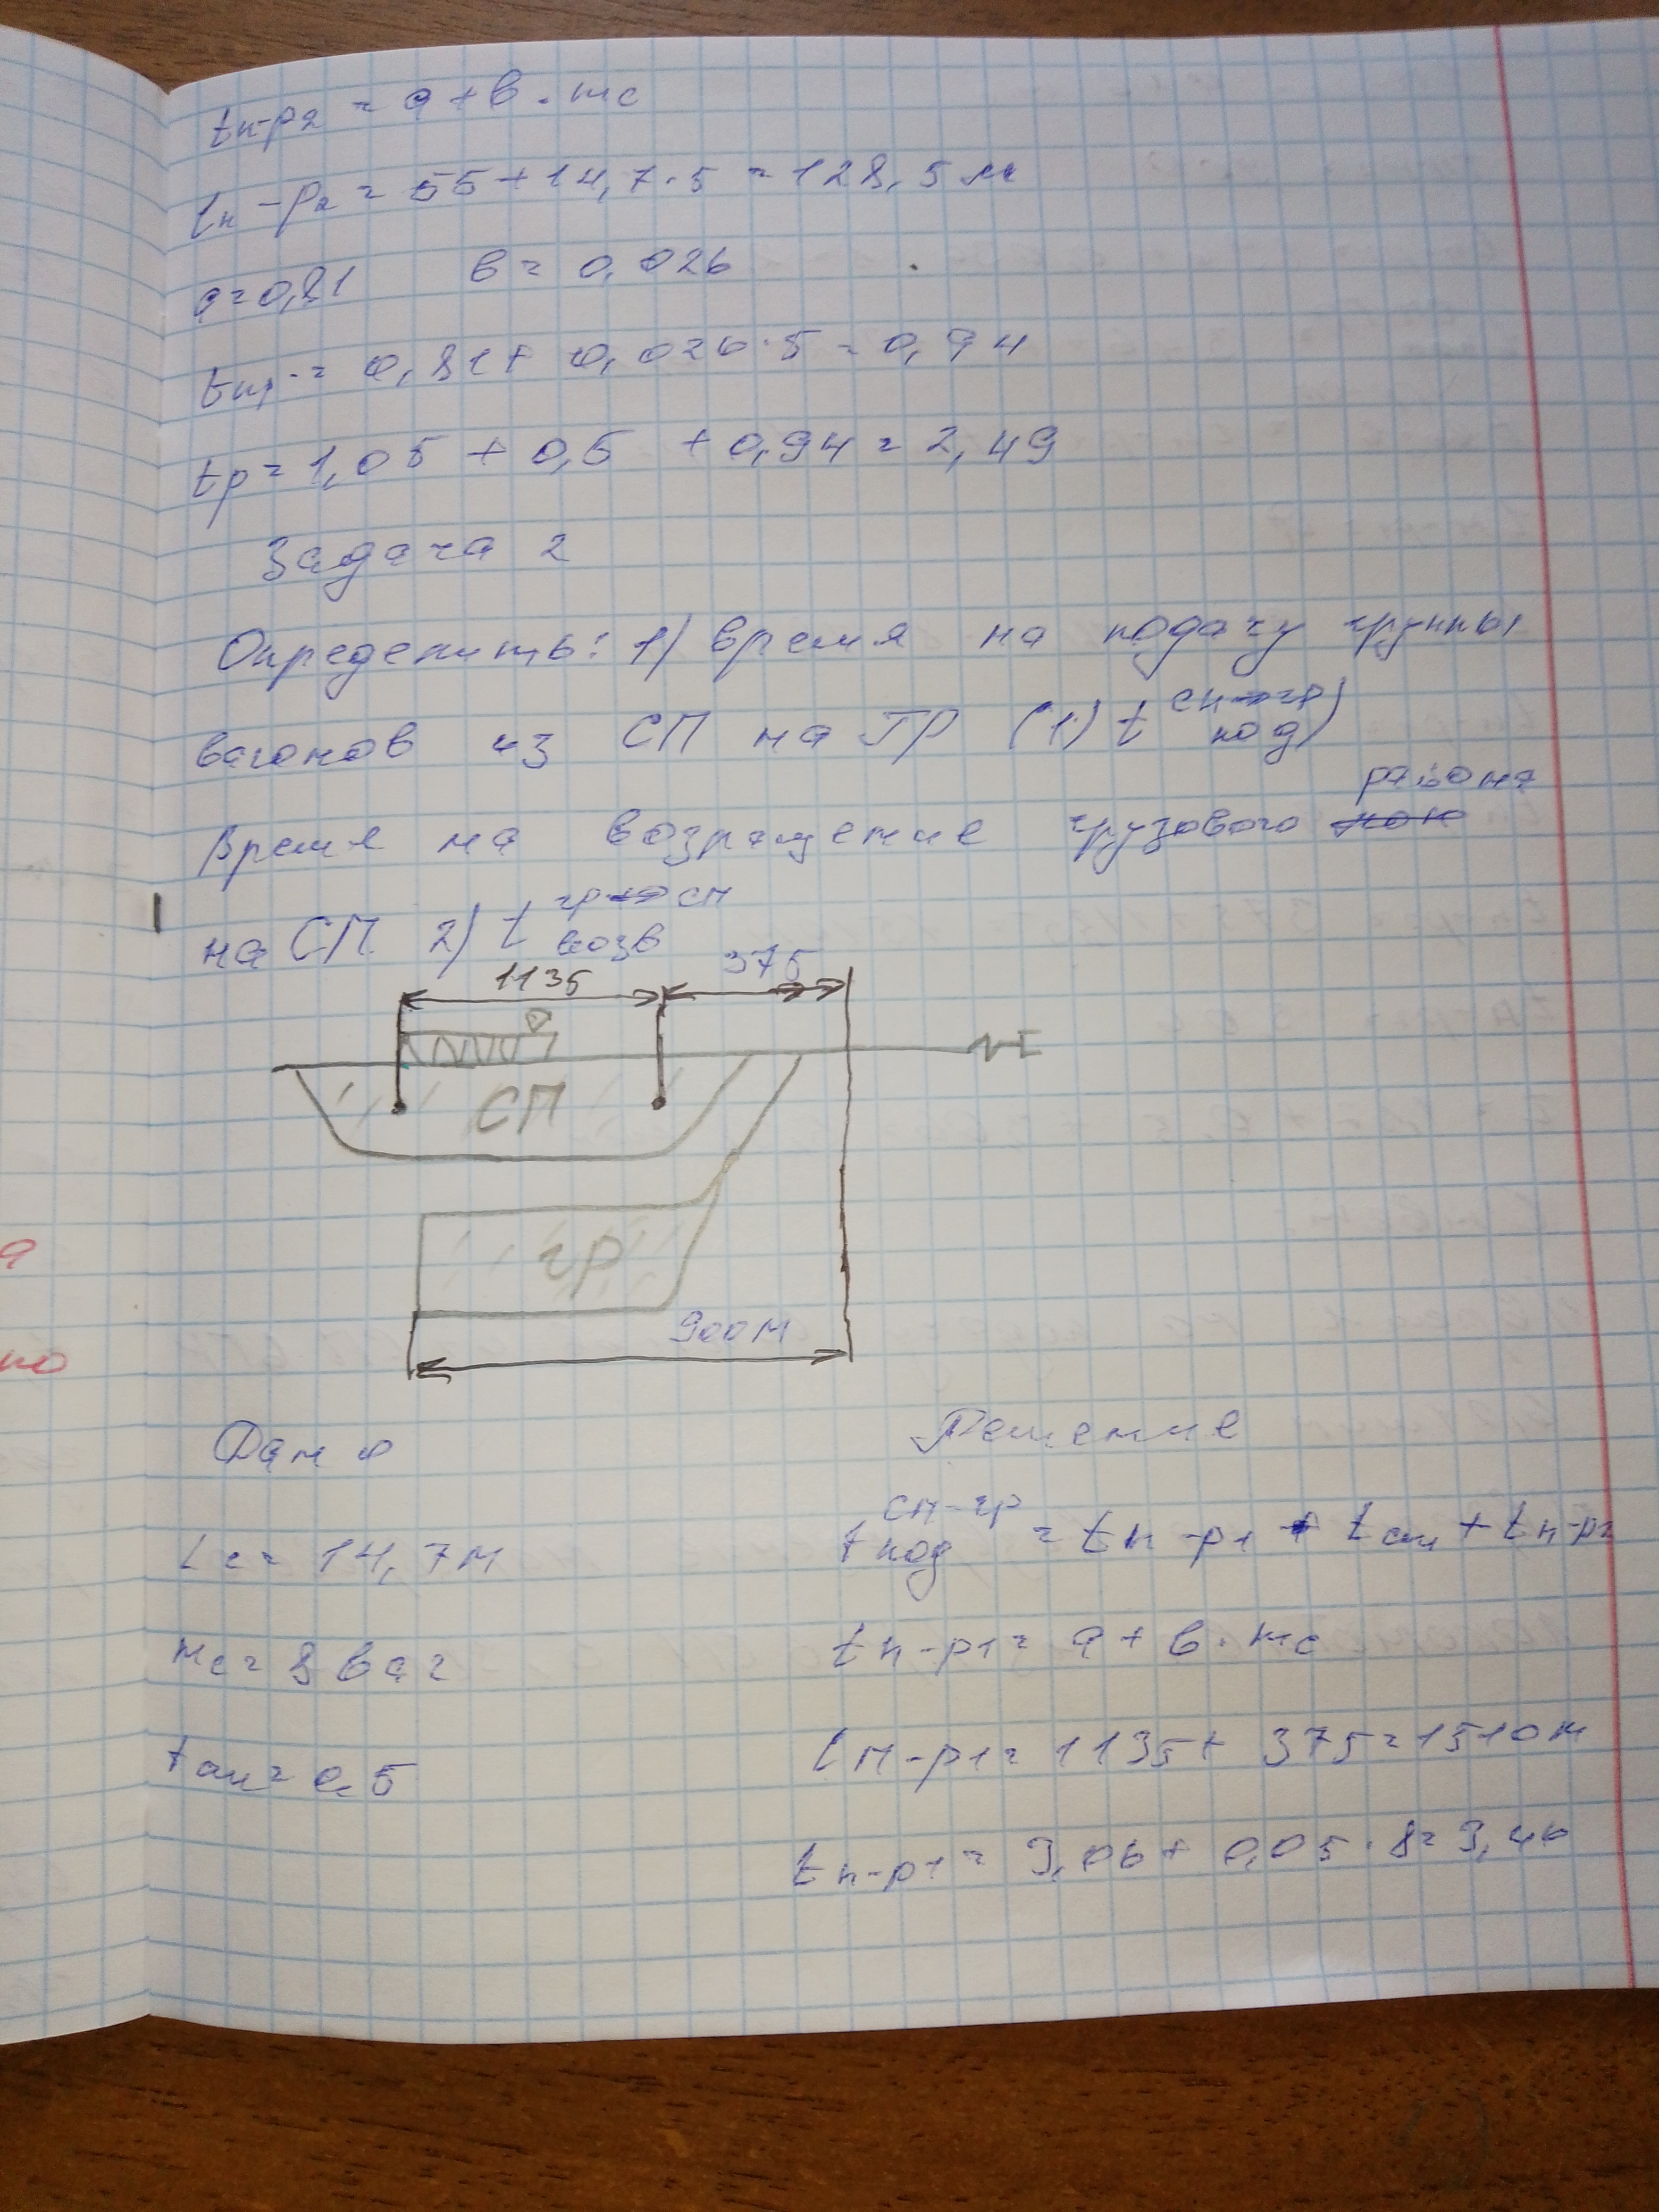 tп-р2 = а + в · mс
lп-р2 = 55 + 14,7 · 5 = 128,5 м
а = 0,81 в = 0,026
tпр = 0,81 + 0,026 · 5 = 0,94
tр = 1,05 + 0,5 + 0,94 = 2,49
Задача 2
Определить: 1) время на подачу группы
вагонов из СП на ГР (1) t сп→гр под)
время на возращение грузового района
на СП 2) t гр→сп возв
1135 375
СП
гр
900 м
Дано Решение
Lс = 14,7 м t сп-гр под = tп-р1 + tсм + tп-р2
mс = 8 ваг tп-р1 = а + в · mс
tсм = 0,5 lп-р1 = 1135 + 375 = 1510 м
tп-р1 = 3,06 + 0,05 · 8 = 3,46